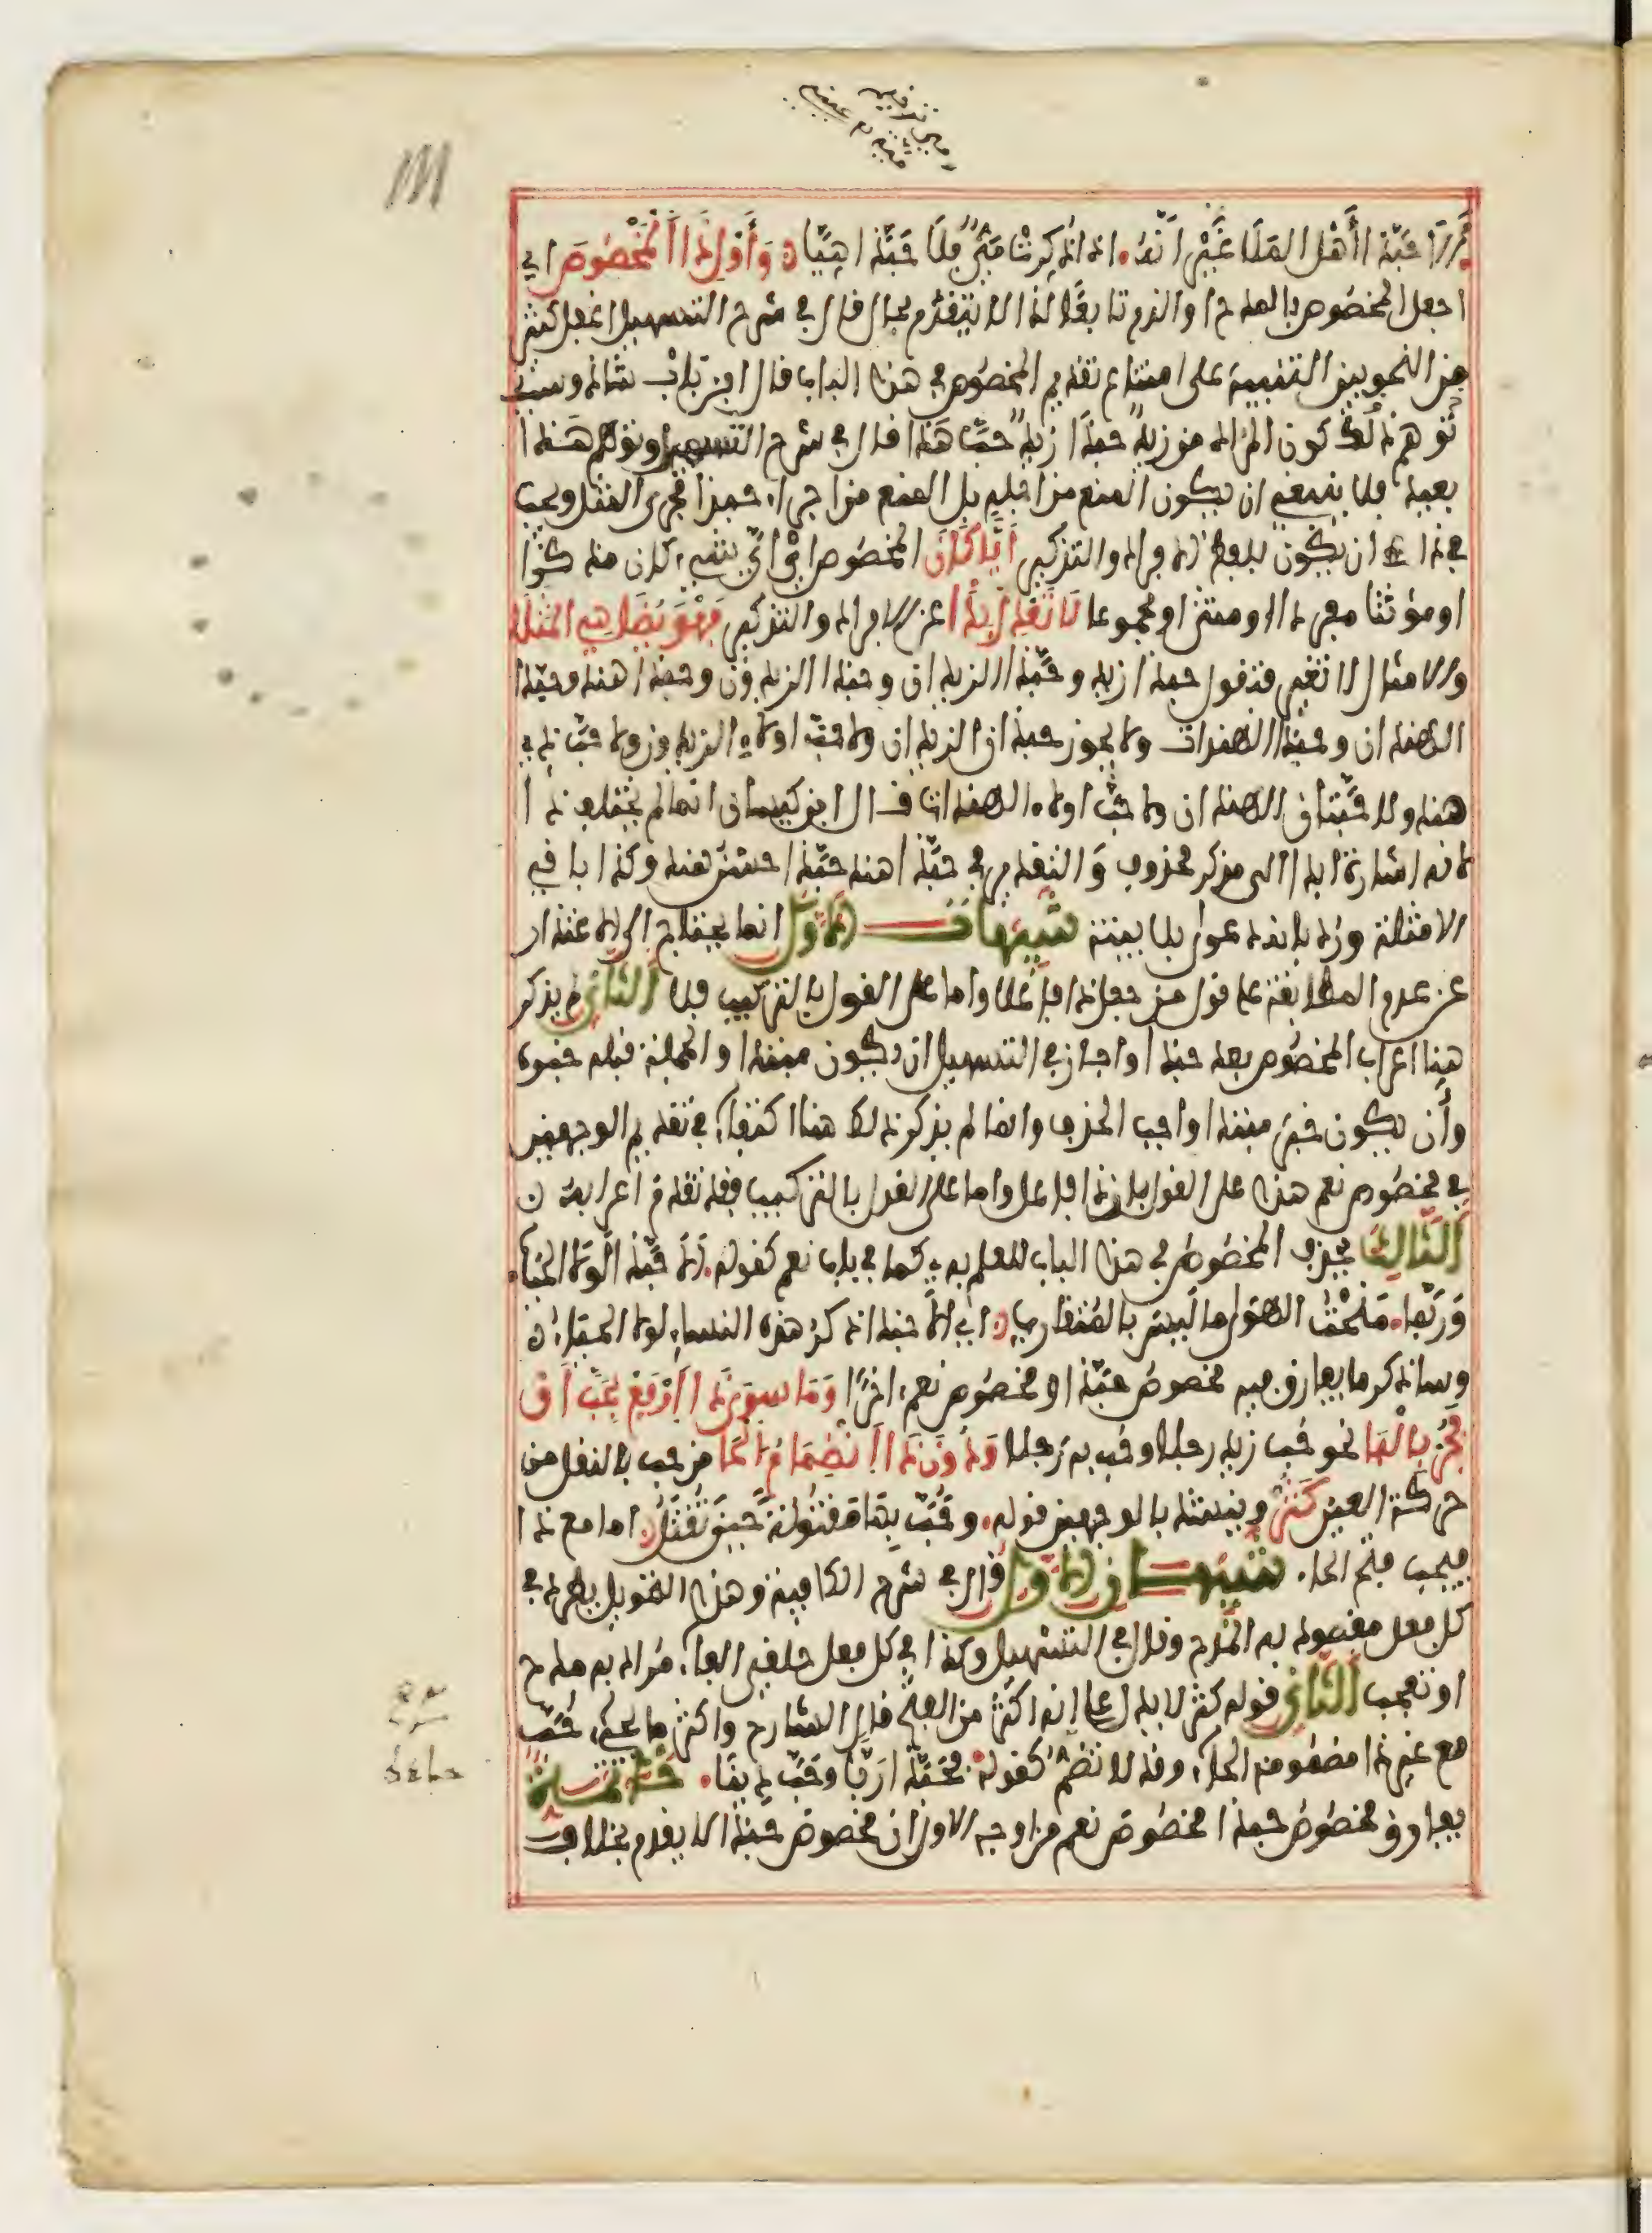 ألا حبّذا أهل الملا غير أنه • اذا ذكرت مي فلا حبّذا هيا ه وأول ذا المخصوص اي
اجعل المخصوص بالمدح او الذم تابعا لذا لا يتقدم بحال قال في شرح التسهيل اغفل كثير
من النحويين التنبيه على امتناع تقديم المخصوص في هذا الباب قال ابن بابشاذ وسبب
توهم ذلك كون المراد من زيد حبذا زيد حب هذا قال في شرح التسهيل وتوهم هذا
بعيد فلا ينبغي ان يكون المنع من اجله بل المنع من اجراء حبذا مجرى المثل ويجب
في ذا ان يكون بلفظ الافراد والتذكير أيّا كان المخصوص اي اي شيء كان مذكرا
او مؤنثا مفردا او مثنى او مجموعا لا تعدل بذا عن الافراد والتذكير فهو يضاهي المثلا
والامثال لا تغير فتقول حبذا زيد وحبذا الزيدان وحبذا الزيدون وحبذا هند وحبذا
الهندان وحبذا الهندات ولا يجوز حبذان الزيدان ولا حب اولاء الزيدون ولا حب ذي
هند ولا حبتان الهندان ولا حب اولاء الهندات قال ابن كيسان انما لم يختلف ذا
لانه اشارة ابدا الى مذكر محذوف والتقدير في حبذا هند حبذا حسن هند وكذا باقي
الامثلة ورد بانه دعوى بلا بينة تنبيهات الأول انما يحتاج الى الاعتذار
عن عدم المطابقة على قول من جعل ذا فاعلا واما على القول بالتركيب فلا الثاني لم يذكر
هنا اعراب المخصوص بعد حبذا واجاز في التسهيل ان يكون مبتدا والجملة قبله خبره
وأن يكون خبر مبتدا واجب الحذف وانما لم يذكر ذلك هنا اكتفاء في تقديم الوجهين
في مخصوص نعم هذا على القول بان ذا فاعل واما على القول بالتركيب فقد تقدم اعرابه ن
الثالث يحذف المخصوص في هذا الباب للعلم به كما في باب نعم كقوله • ألا حبذا لولا الحياء
وربما • منحت الهوى ما ليس بالمتقارب ه اي الا حبذا ذكر هذه النساء لولا الحياء ن
وساذكر ما يفارق فيه مخصوص حبذا مخصوص نعم اخرا وما سوى ذا ارفع بحب او
فجر بالبا نحو حب زيد رجلا وحب به رجلا ودون ذا انضمام الحا من حب بالنقل من
حركة العين كثر وينشد بالوجهين قوله • وحب بها مقتولة حين تقتل • اما مع ذا
فيجب فتح الحاء • تنبيهان الأول قال في شرح الكافية وهذا التحويل مطرد في
كل فعل مقصود به المدح وقال في التسهيل وكذا في كل فعل حلقي الفاء مراد به مدح
او تعجب الثاني قوله كثر لا يدل على انه اكثر من الفتح قال الشارح واكثر ما يجيء حب
مع غير ذا مضمومة الحاء وقد لا تضم كقوله • فحبذا ربا وحب دينا • خاتمة
يفارق مخصوص حبذا مخصوص نعم من اوجه الاول ان مخصوص حبذا لا يقدم بخلاف